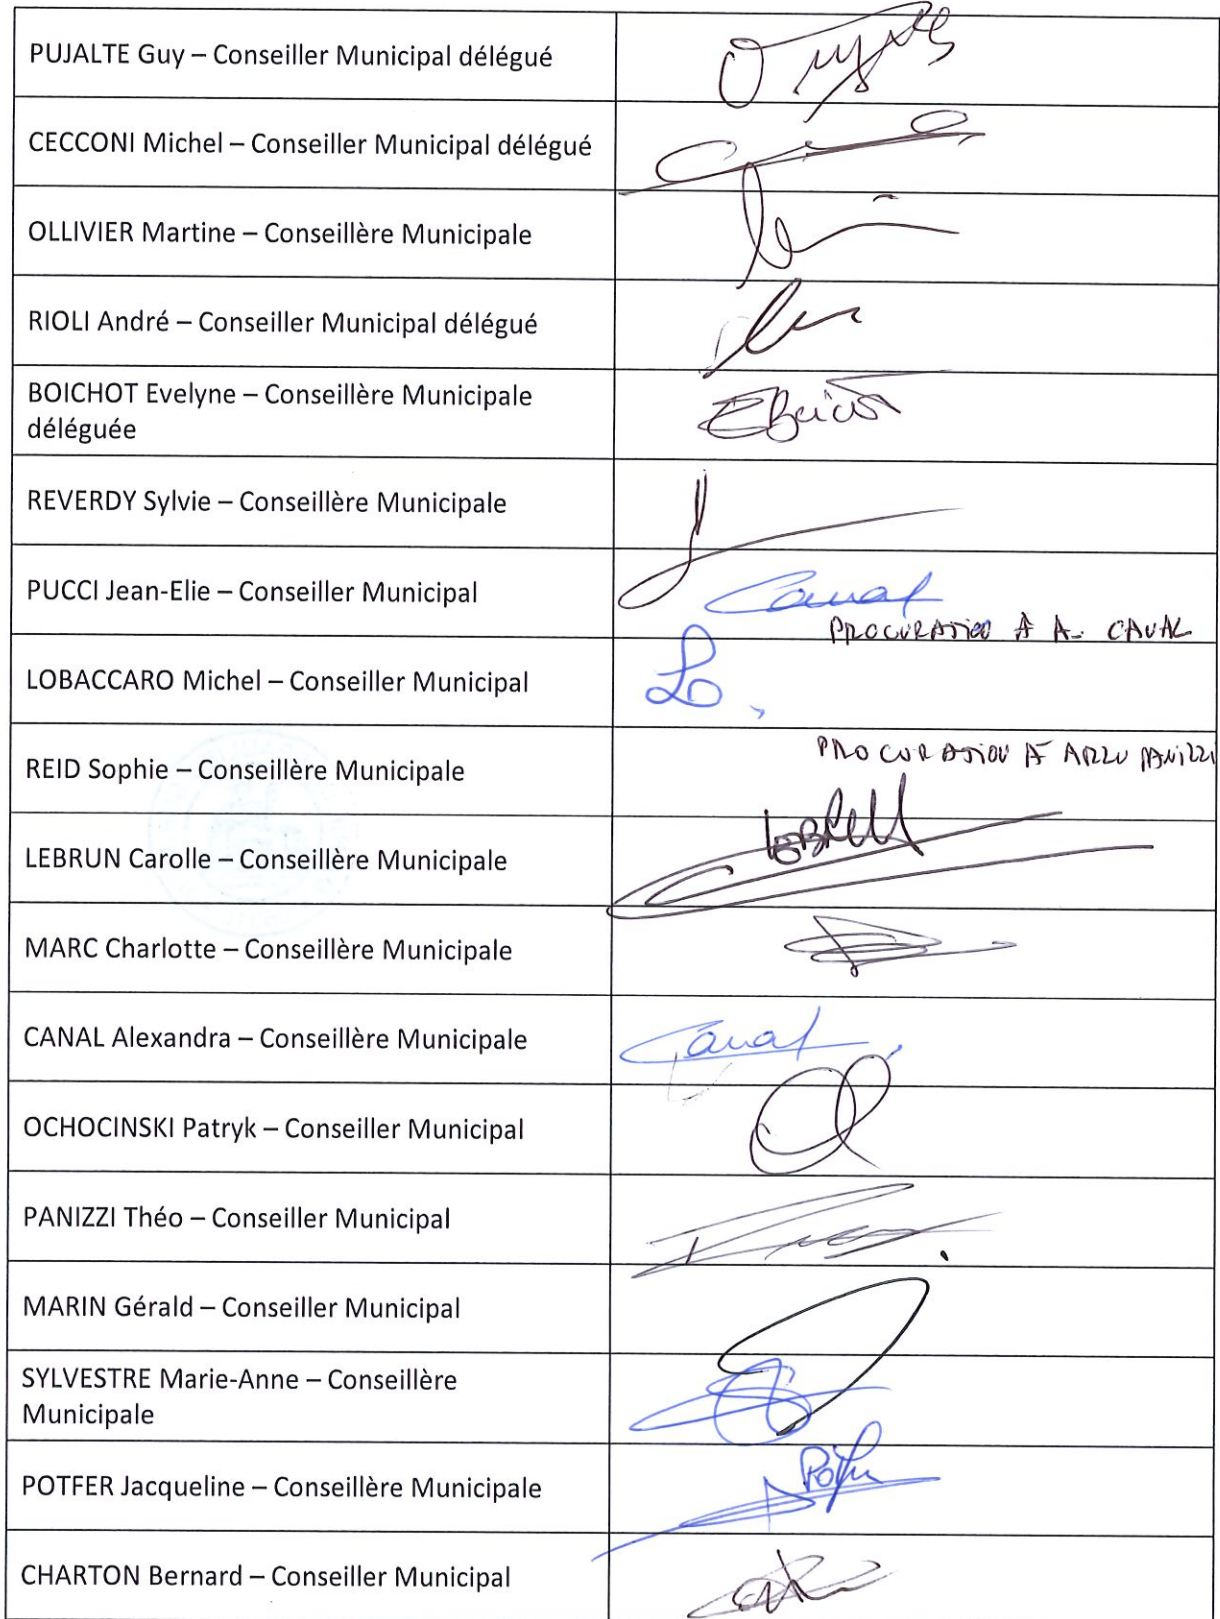 PUJALTE Guy – Conseiller Municipal délégué
CECCONI Michel – Conseiller Municipal délégué
OLLIVIER Martine – Conseillère Municipale
RIOLI André – Conseiller Municipal délégué
BOICHOT Evelyne – Conseillère Municipale
déléguée
REVERDY Sylvie – Conseillère Municipale
PUCCI Jean-Elie – Conseiller Municipal
Canal
PROCURATION À A. CANAL
LOBACCARO Michel – Conseiller Municipal
PROCURATION À
REID Sophie – Conseillère Municipale
LEBRUN Carolle – Conseillère Municipale
MARC Charlotte – Conseillère Municipale
CANAL Alexandra – Conseillère Municipale
Canal
OCHOCINSKI Patryk – Conseiller Municipal
PANIZZI Théo – Conseiller Municipal
MARIN Gérald – Conseiller Municipal
SYLVESTRE Marie-Anne – Conseillère
Municipale
POTFER Jacqueline – Conseillère Municipale
CHARTON Bernard – Conseiller Municipal